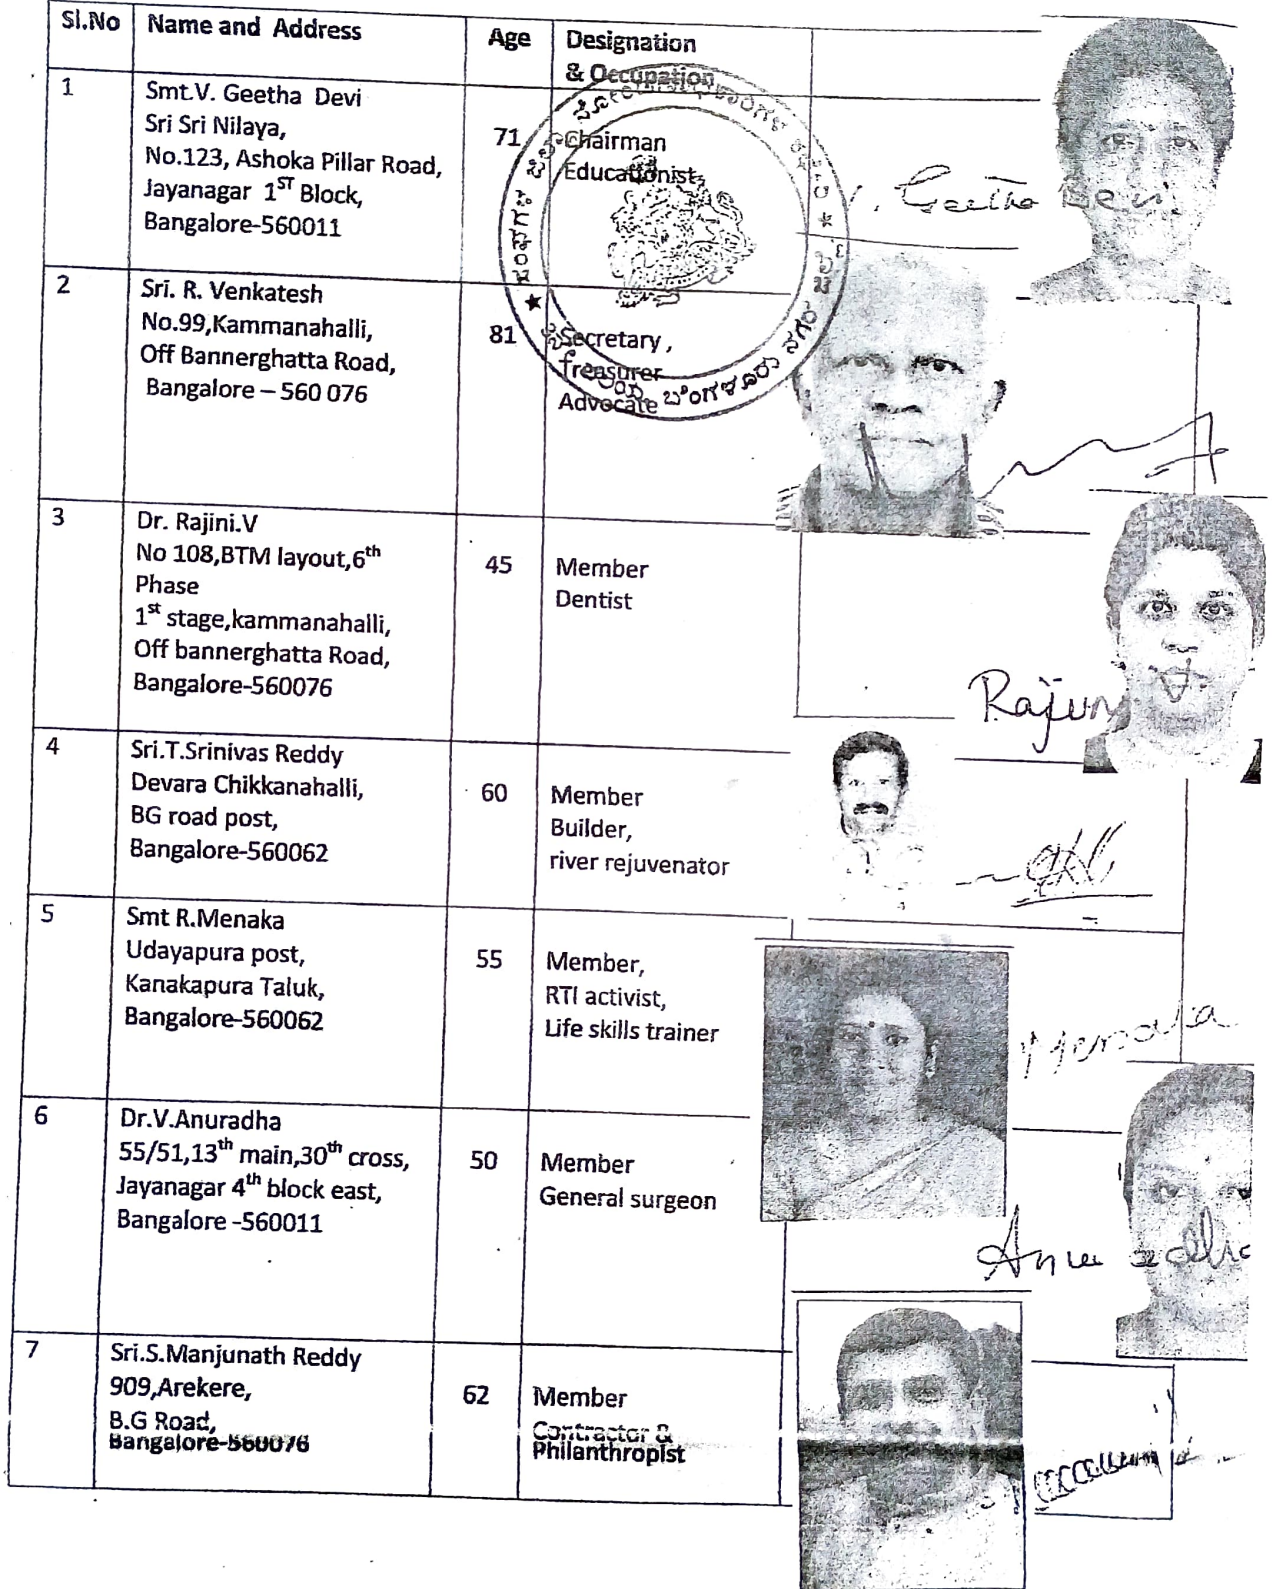 Sl.No Name and Address Age Designation
& Occupation
1 Smt.V. Geetha Devi
Sri Sri Nilaya,
No.123, Ashoka Pillar Road,
Jayanagar 1ST Block,
Bangalore-560011
71 Chairman
Educationist
V. Geetha Devi
2 Sri. R. Venkatesh
No.99,Kammanahalli,
Off Bannerghatta Road,
Bangalore – 560 076
81 Secretary ,
Treasurer
Advocate
ಬೆಂಗಳೂರು ನಗರ
3 Dr. Rajini.V
No 108,BTM layout,6th
Phase
1st stage,kammanahalli,
Off bannerghatta Road,
Bangalore-560076
45 Member
Dentist
4 Sri.T.Srinivas Reddy
Devara Chikkanahalli,
BG road post,
Bangalore-560062
60 Member
Builder,
river rejuvenator
5 Smt R.Menaka
Udayapura post,
Kanakapura Taluk,
Bangalore-560062
55 Member,
RTI activist,
Life skills trainer
Menaka
6 Dr.V.Anuradha
55/51,13th main,30th cross,
Jayanagar 4th block east,
Bangalore -560011
50 Member
General surgeon
Anuradha
7 Sri.S.Manjunath Reddy
909,Arekere,
B.G Road,
Bangalore-560076
62 Member
Contractor &
Philanthropist